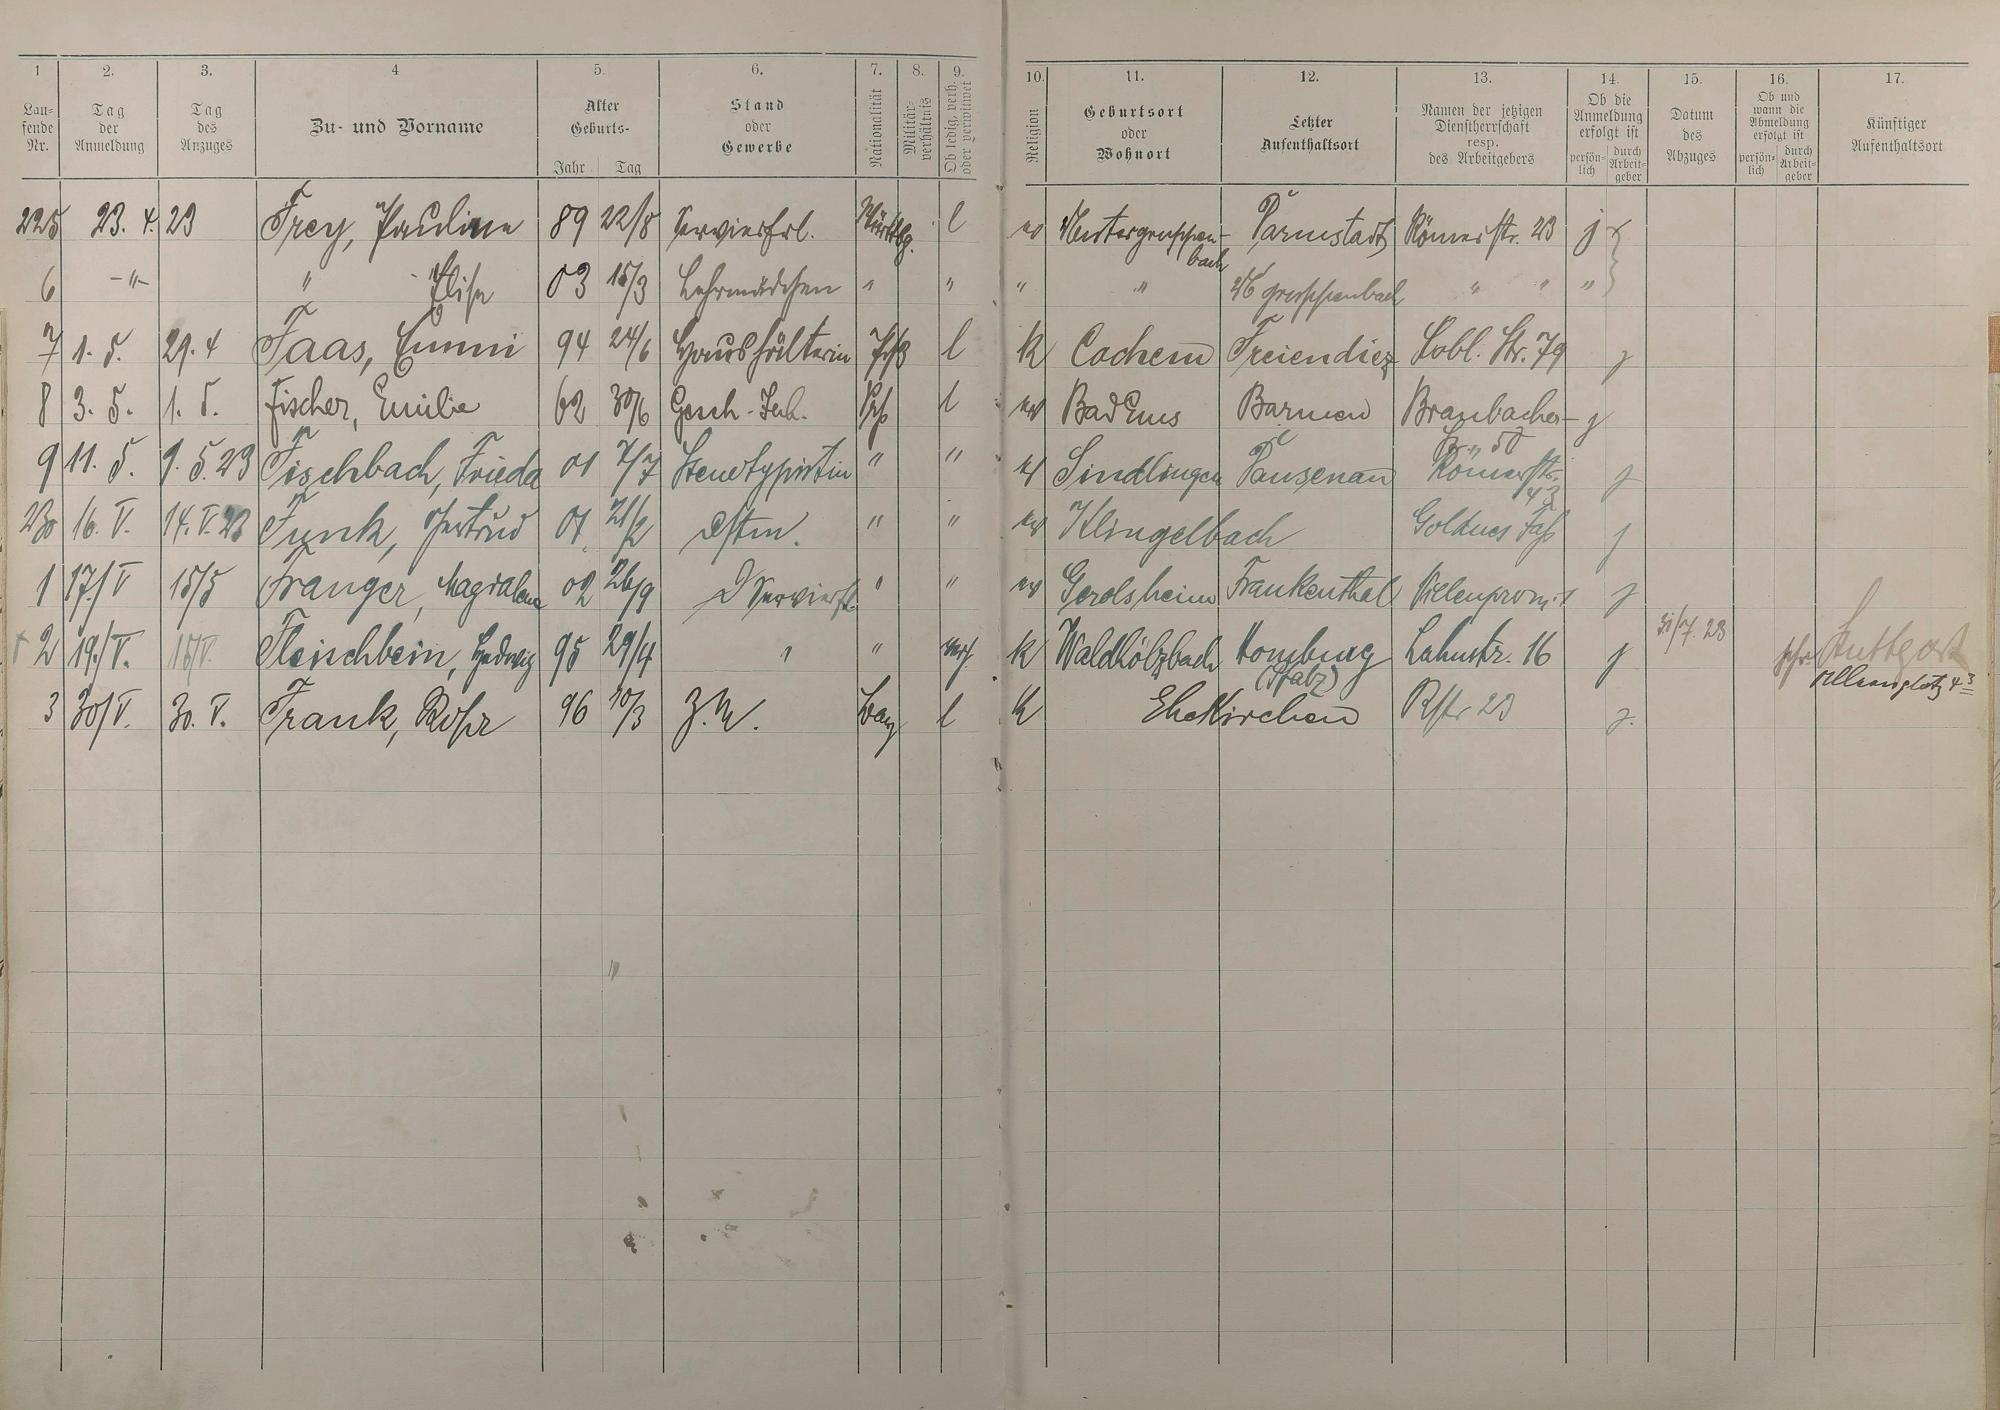 1 2. 3. 4 5. 6. 7. 8. 9. 10. 11. 12. 13. 14. 15. 16. 17.
Lau-
fende
Nr.
Tag
der
Anmeldung
Tag
des
Anzuges
Zu- und Vorname
Alter
Geburts-
Jahr Tag
Stand
oder
Gewerbe
Nationalität
Militär-
verhältnis
Ob ledig, verh.
oder verwitwet
Religion
Geburtsort
oder
Wohnort
Letzter
Aufenthaltsort
Namen der jetzigen
Dienstherrschaft
resp.
des Arbeitgebers
Ob die
Anmeldung
erfolgt ist
persön-
lich
durch
Arbeit-
geber
Datum
des
Abzuges
Ob und
wann die
Abmeldung
erfolgt ist
persön-
lich
durch
Arbeit-
geber
Künftiger
Aufenthaltsort
225 23. 4. 23 Frey, Pauline 89 22/8 Servierfrl. Württbg. l ev Untergruppen- Darmstadt Römerstr. 23 j
bach
6 -"- " Elise 03 15/3 Lehrmädchen " " " " U gruppenbach " " "
7 1. 5. 29. 4 Faas, Emmi 94 24/6 Haushälterin Prß l k Cochem Freiendiez Kobl. Str. 79 j
8 3. 5. 1. 5. Fischer, Emilie 62 30/6 Gesch.-Inh. Prß l ev Bad Ems Barmen Braubacher- j
Str. 50
9 11. 5. 9. 5. 23 Fischbach, Frieda 01 7/7 Stenotypistin " " ev Sindlingen Dausenau Römerstr. j
43
230 16. V. 14. V. 23 Funk, Gertrud 01 21/2 Dstm. " " ev Klingelbach Goldnes Faß j
1 17./V 15/5 Franger, Magdalena 02 26/9 Servierfl. " " ev Gerolsheim Frankenthal Villenprom. 1 j
2 19./V. 15/V. Fleischbein, Hedwig 95 29/4 " " verh k Waldhölzbach Homburg Lahnstr. 16 j 31/7. 23 Stuttgart
(Pfalz)
3 30/V. 30. V. Frank, Rosa 96 10/3 Z. M. Bay l k Ehekirchen Rstr 23 j.